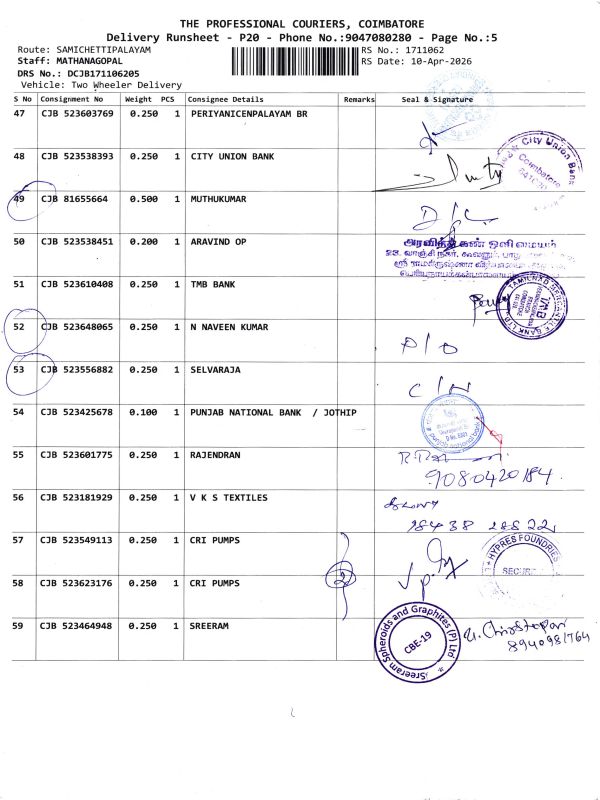 THE PROFESSIONAL COURIERS, COIMBATORE
Delivery Runsheet - P20 - Phone No.:9047080280 - Page No.:5
Route: SAMICHETTIPALAYAM RS No.: 1711062
Staff: MATHANAGOPAL RS Date: 10-Apr-2026
DRS No.: DCJB171106205
Vehicle: Two Wheeler Delivery
S No Consignment No Weight PCS Consignee Details Remarks Seal & Signature
47 CJB 523603769 0.250 1 PERIYANICENPALAYAM BR
48 CJB 523538393 0.250 1 CITY UNION BANK
City Union Bank
Coimbatore
49 CJB 81655664 0.500 1 MUTHUKUMAR D/L
50 CJB 523538451 0.200 1 ARAVIND OP
அரவிந்த் கண் ஒளி மையம்
51 CJB 523610408 0.250 1 TMB BANK
TAMILNAD MERCANTILE BANK LTD
TMB
52 CJB 523648065 0.250 1 N NAVEEN KUMAR D/O
53 CJB 523556882 0.250 1 SELVARAJA C/N
54 CJB 523425678 0.100 1 PUNJAB NATIONAL BANK / JOTHIP
punjab national bank
55 CJB 523601775 0.250 1 RAJENDRAN
9080420184
56 CJB 523181929 0.250 1 V K S TEXTILES
98438 28822
57 CJB 523549113 0.250 1 CRI PUMPS
HYPRES FOUNDRIES
SECURI
58 CJB 523623176 0.250 1 CRI PUMPS
2
59 CJB 523464948 0.250 1 SREERAM
Sreeram Spheroids and Graphites (P) Ltd
CBE-19
8940981764